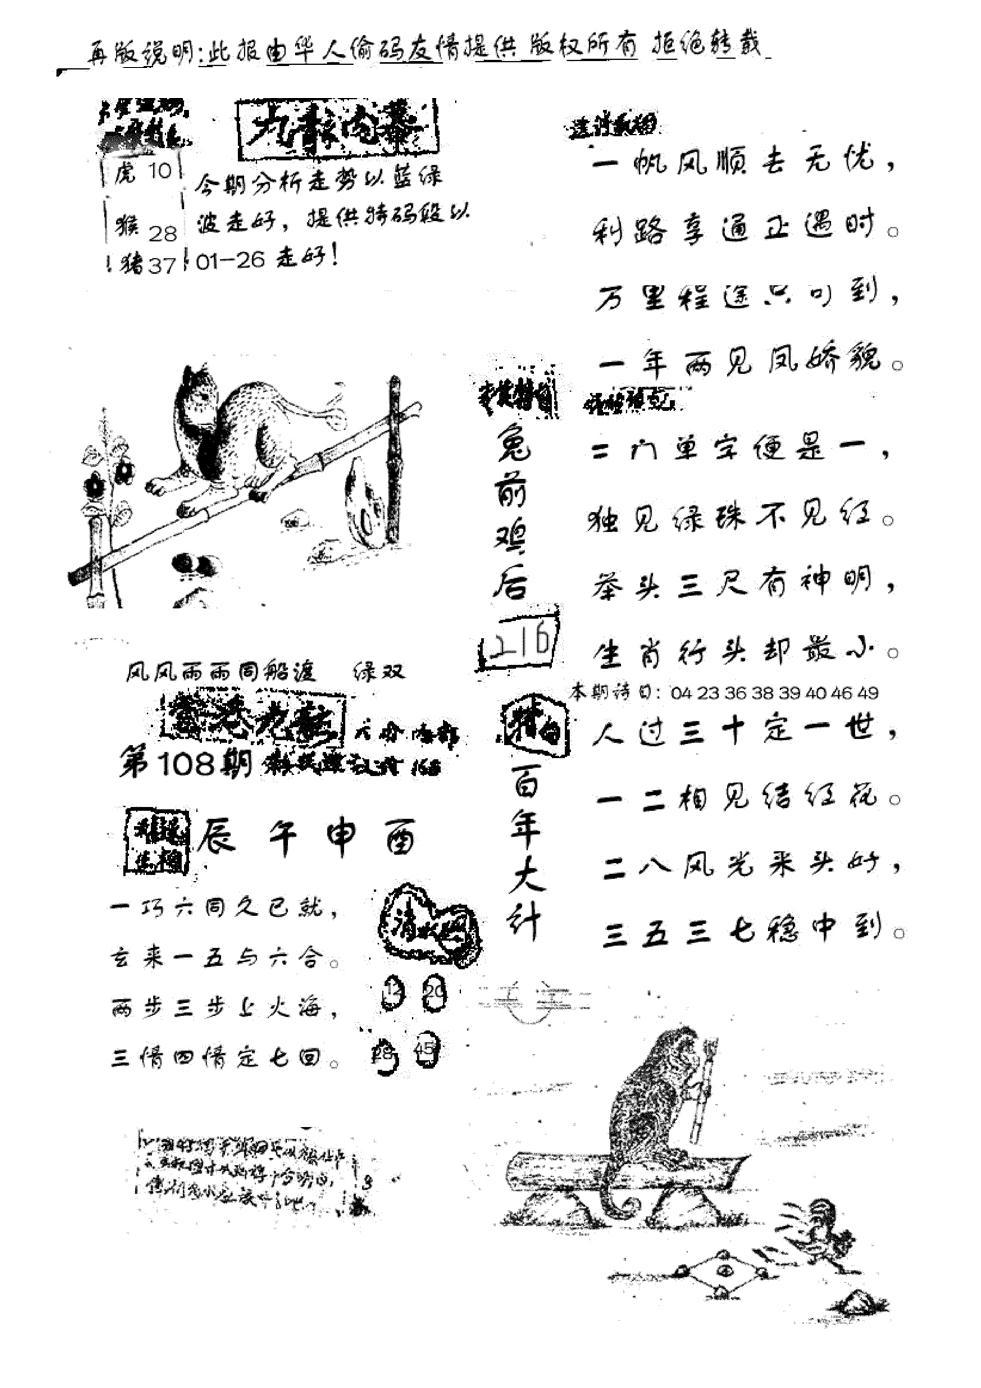 再版说明:此报由华人偷码友情提供 版权所有 拒绝转载
九龙内幕
虎 10
猴 28
猪 37
今期分析走势以蓝绿
波走好，提供特码段以
01-26 走好！
一帆风顺去无忧，
利路享通正遇时。
万里程途只可到，
一年两见凤娇貌。
兔前鸡后
216
二门单字便是一，
独见绿珠不见红。
举头三尺有神明，
生肖行头却最小。
本期诗曰：04 23 36 38 39 40 46 49
风风雨雨同船渡 绿双
香港九龙
第108期
辰午申酉
一巧六同久已就，
玄来一五与六合。
两步三步上火海，
三情四情定七回。
12 20
28 45
特曰
百年大计
人过三十定一世，
一二相见结红花。
二八风光采头好，
三五三七稳中到。